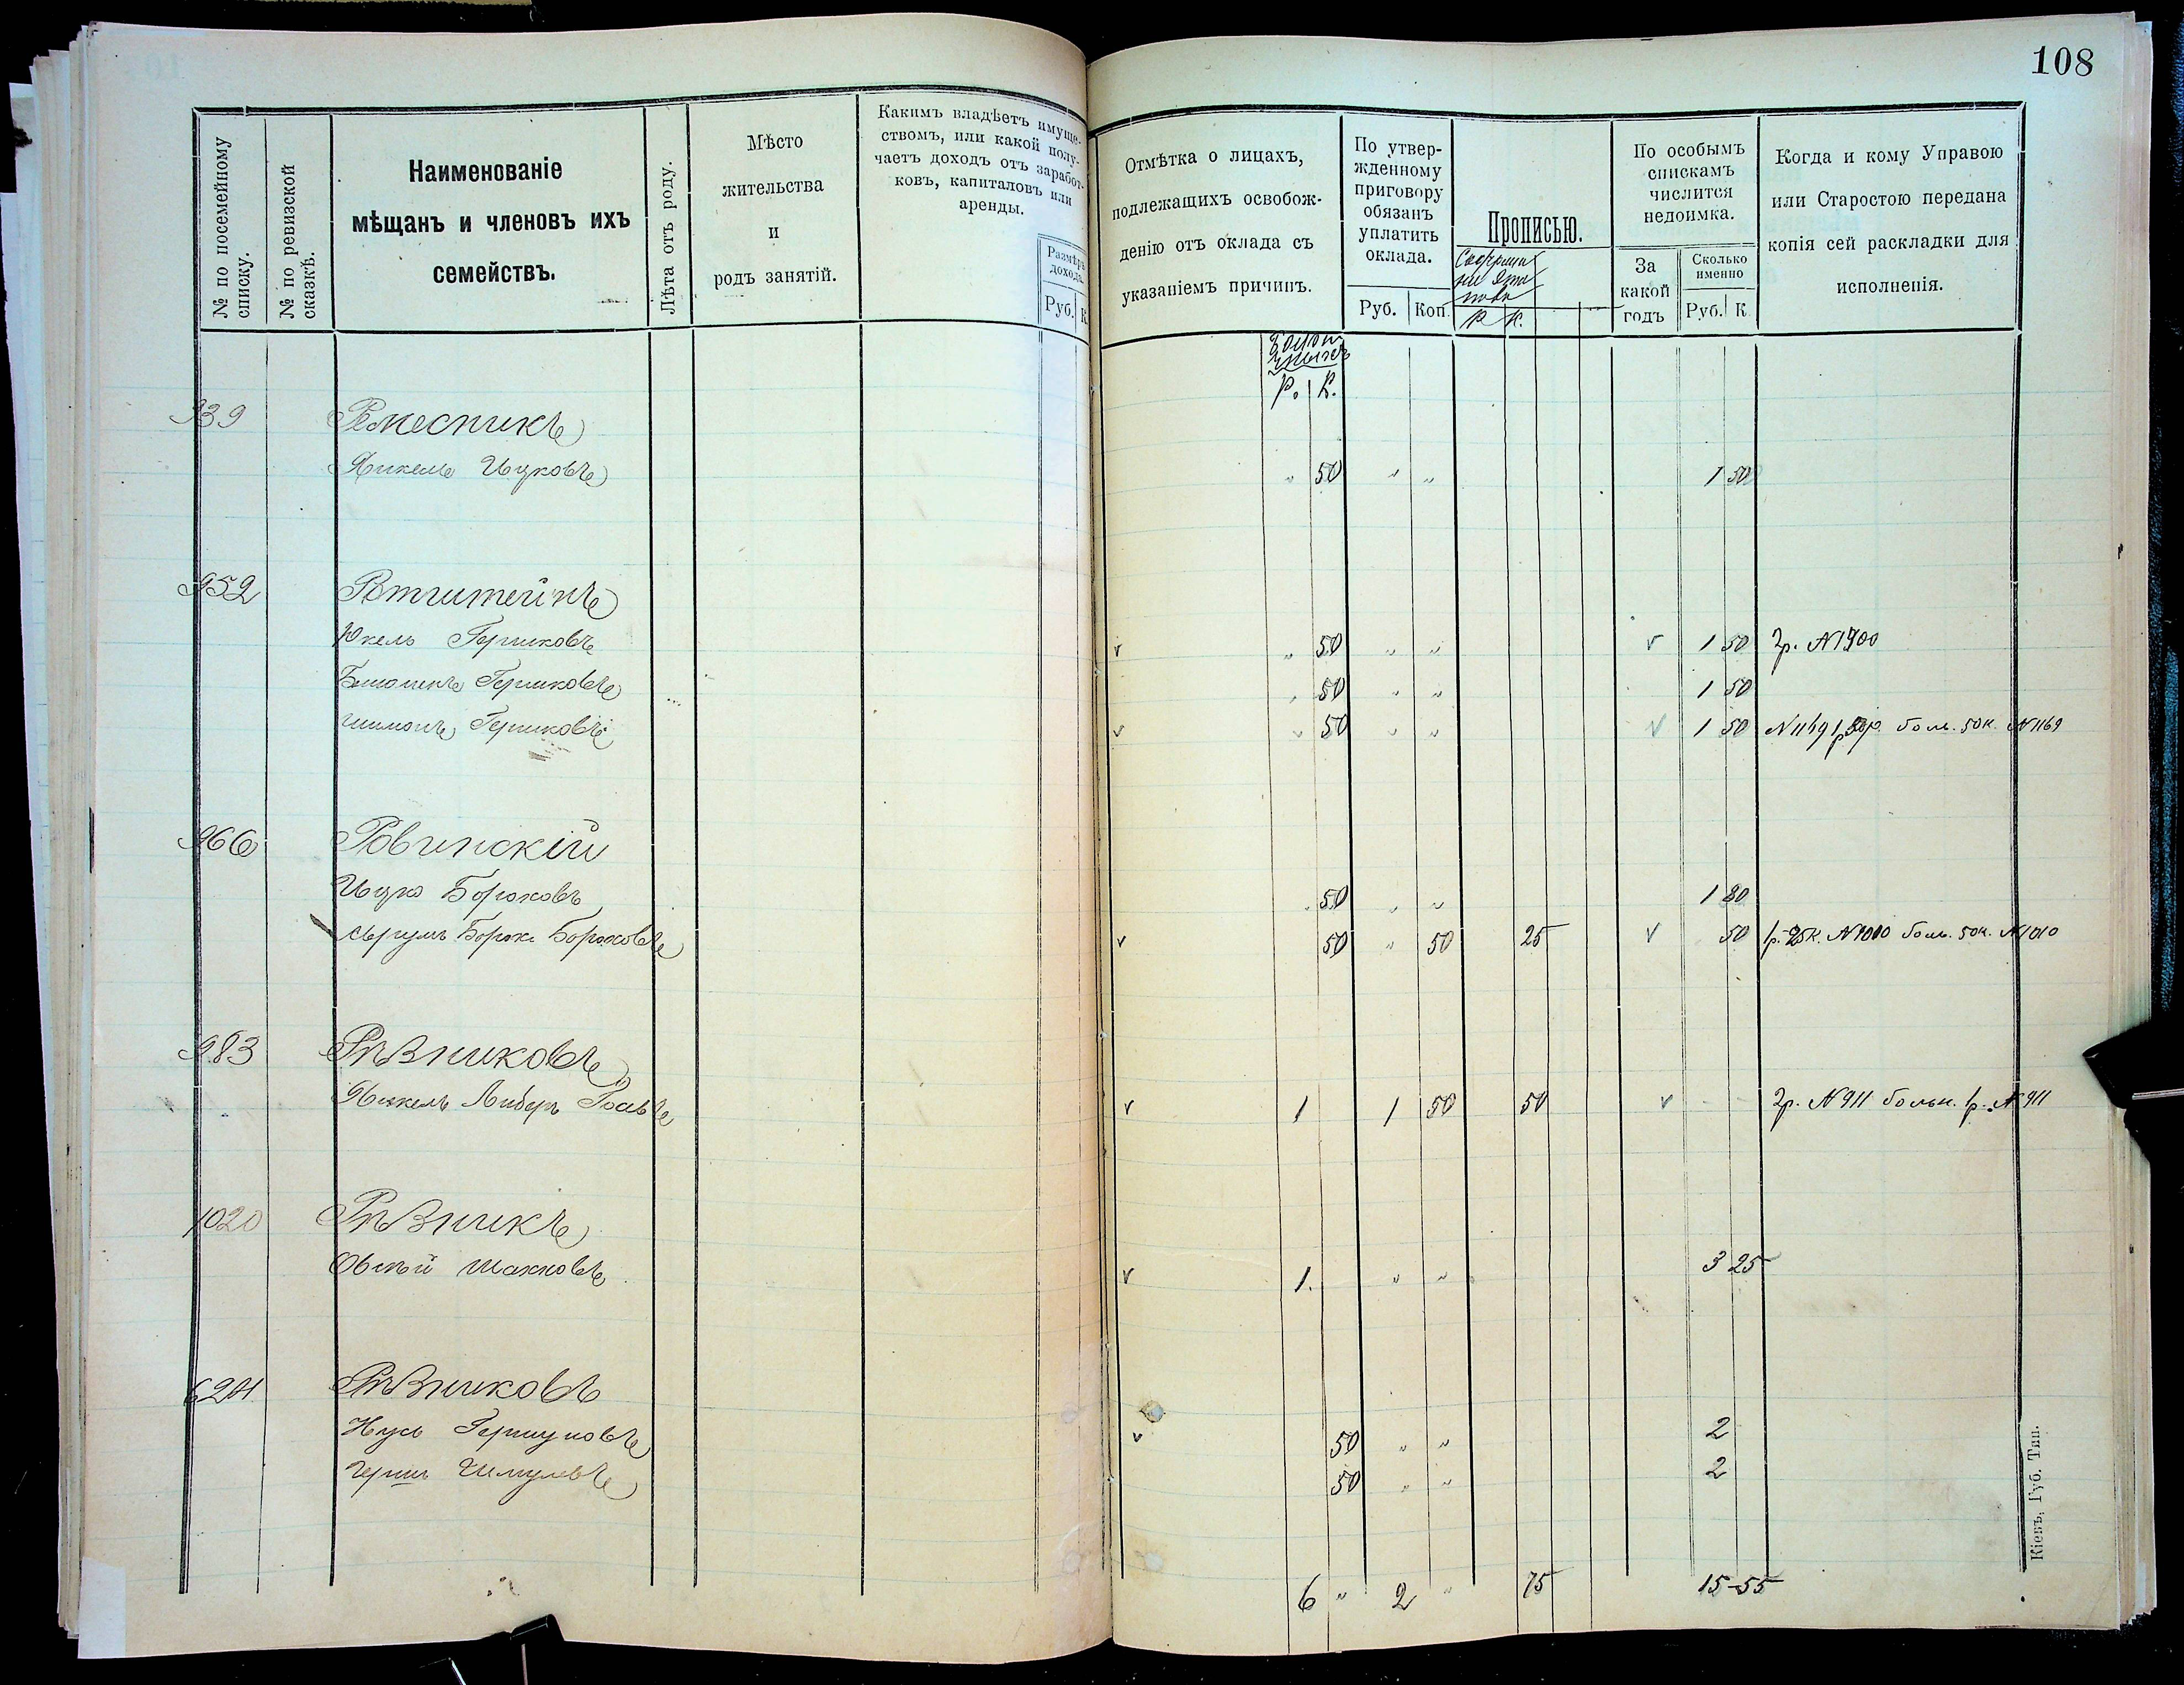 108
№ по посемейному списку.
№ по ревизской сказкѣ.
Наименованіе
мѣщанъ и членовъ ихъ
семействъ.
Лѣта отъ роду.
Мѣсто
жительства
и
родъ занятій.
Какимъ владѣетъ имуще-
ствомъ, или какой полу-
чаетъ доходъ отъ заработ-
ковъ, капиталовъ или
аренды.
Размѣръ
дохода.
Руб. К.
Отмѣтка о лицахъ,
подлежащихъ освобож-
денію отъ оклада съ
указаніемъ причинъ.
По утвер-
жденному
приговору
обязанъ
уплатить
оклада.
Руб. Коп.
Прописью.
Р К.
По особымъ
спискамъ
числится
недоимка.
За
какой
годъ
Сколько
именно
Руб. К
Когда и кому Управою
или Старостою передана
копія сей раскладки для
исполненія.
Р. К.
939 Ремесникъ
Янкель Ицковъ „ 50 „ „ 1 50
952
Юкель Гершковъ v „ 50 „ „ v 1 50 2р. N1700
Гершковъ „ 50 „ „ 1 50
Шимонъ Гершковъ v „ 50 „ „ v 1 50 N1169 боль. 50к. N1169
966 Ровинскій
Ицко Бороховъ 50 „ „ 1 80
Борох Бороховъ v 50 „ 50 25 v 50 1р. 25к. N1010 боль. 50к. N1010
983 Рѣзниковъ
Янкель Либеръ v 1 1 50 50 v - - 2р. N911 больн. 1р. N911
1020 Рѣзникъ
Овсѣй v 1. „ „ 3 25
624 Рѣзниковъ
Нусь Гершуновъ v 50 „ „ 2
Герш Шмулевъ 50 „ „ 2
6 „ 2 „ 75 15-55
Кіевъ, Губ. Тип.